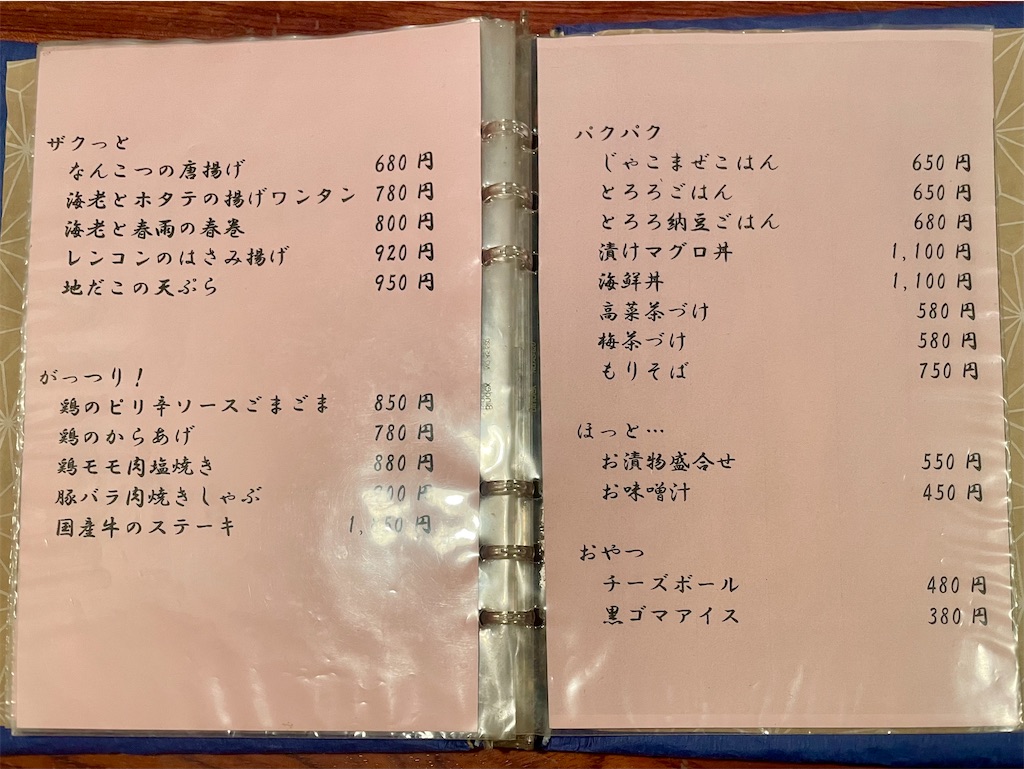 ザクっと
なんこつの唐揚げ 680 円
海老とホタテの揚げワンタン 780 円
海老と春雨の春巻 800 円
レンコンのはさみ揚げ 920 円
地だこの天ぷら 950 円
がっつり！
鶏のピリ辛ソースごまごま 850 円
鶏のからあげ 780 円
鶏モモ肉塩焼き 880 円
豚バラ肉焼きしゃぶ 円
国産牛のステーキ 円
パクパク
じゃこまぜごはん 650 円
とろろごはん 650 円
とろろ納豆ごはん 680 円
漬けマグロ丼 1,100 円
海鮮丼 1,100 円
高菜茶づけ 580 円
梅茶づけ 580 円
もりそば 750 円
ほっと…
お漬物盛合せ 550 円
お味噌汁 450 円
おやつ
チーズボール 480 円
黒ゴマアイス 380 円